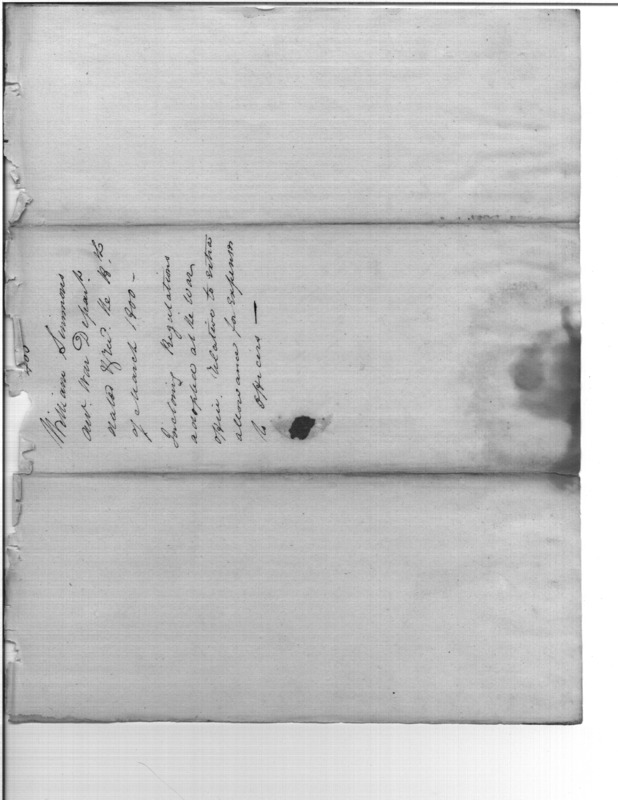 William Simmons
Acct. War Departt.
dated & recd. the 18th
of March 1800 -
Inclosing Regulations
adopted at the War
office. relative to extra
allowance for expenses
to officers —